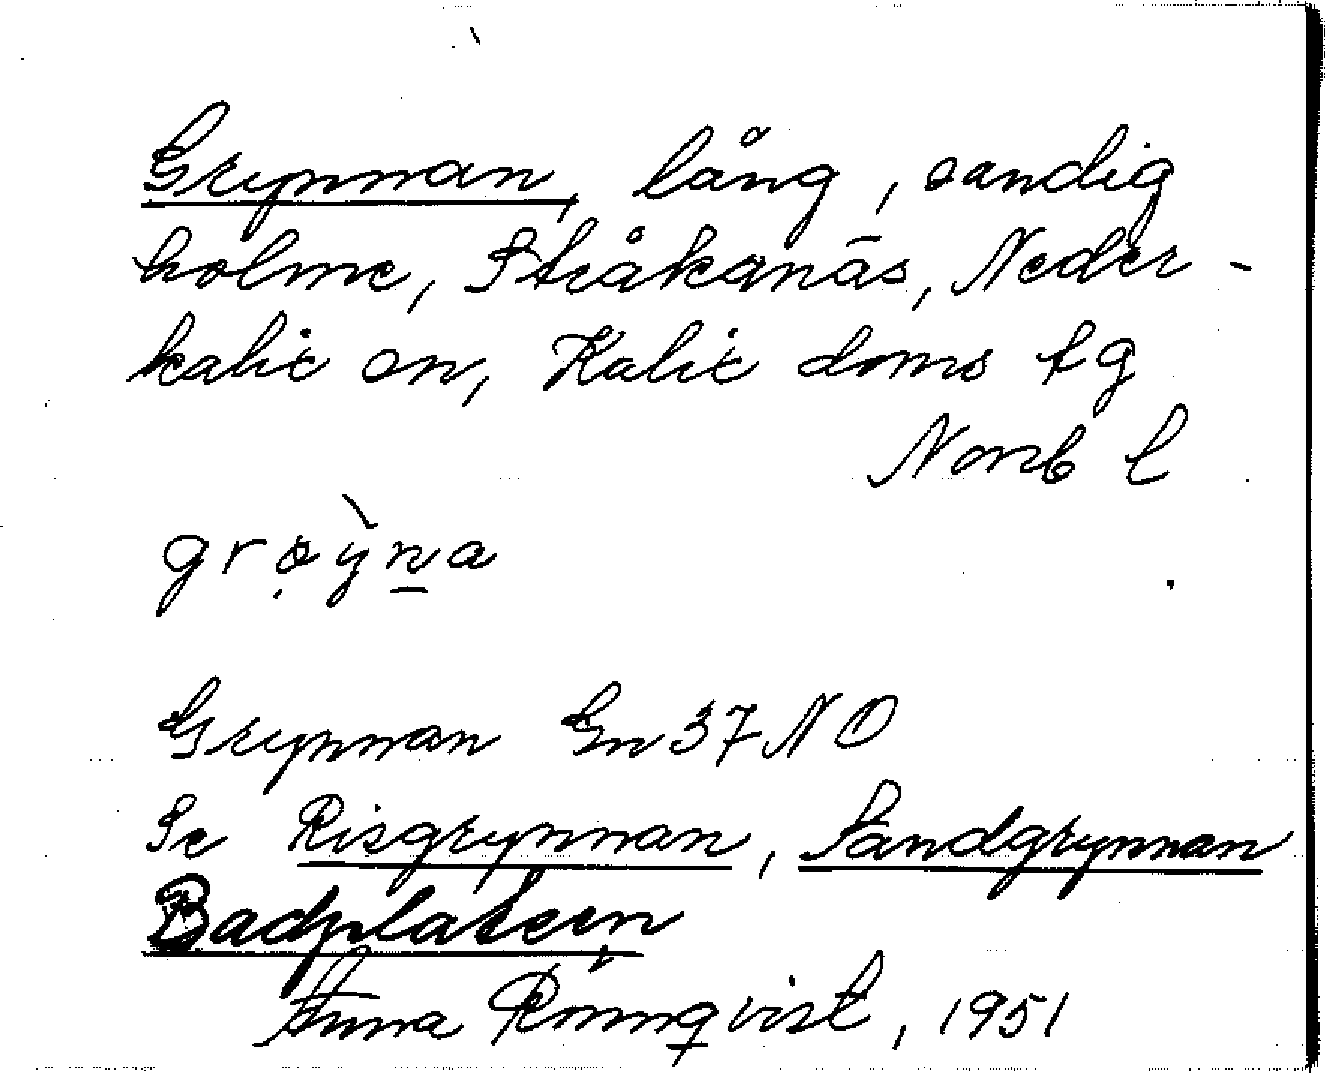 Grynnan, lång, sandig
holme, Stråkanäs, Neder-
kalix sn, Kalix doms tg
Norrb l
grø̣ỳn̲a
Grynnan Gn 37 NO
Se Risgrynnan, Sandgrynnan
Badplatsen
Anna Rönnqvist, 1951